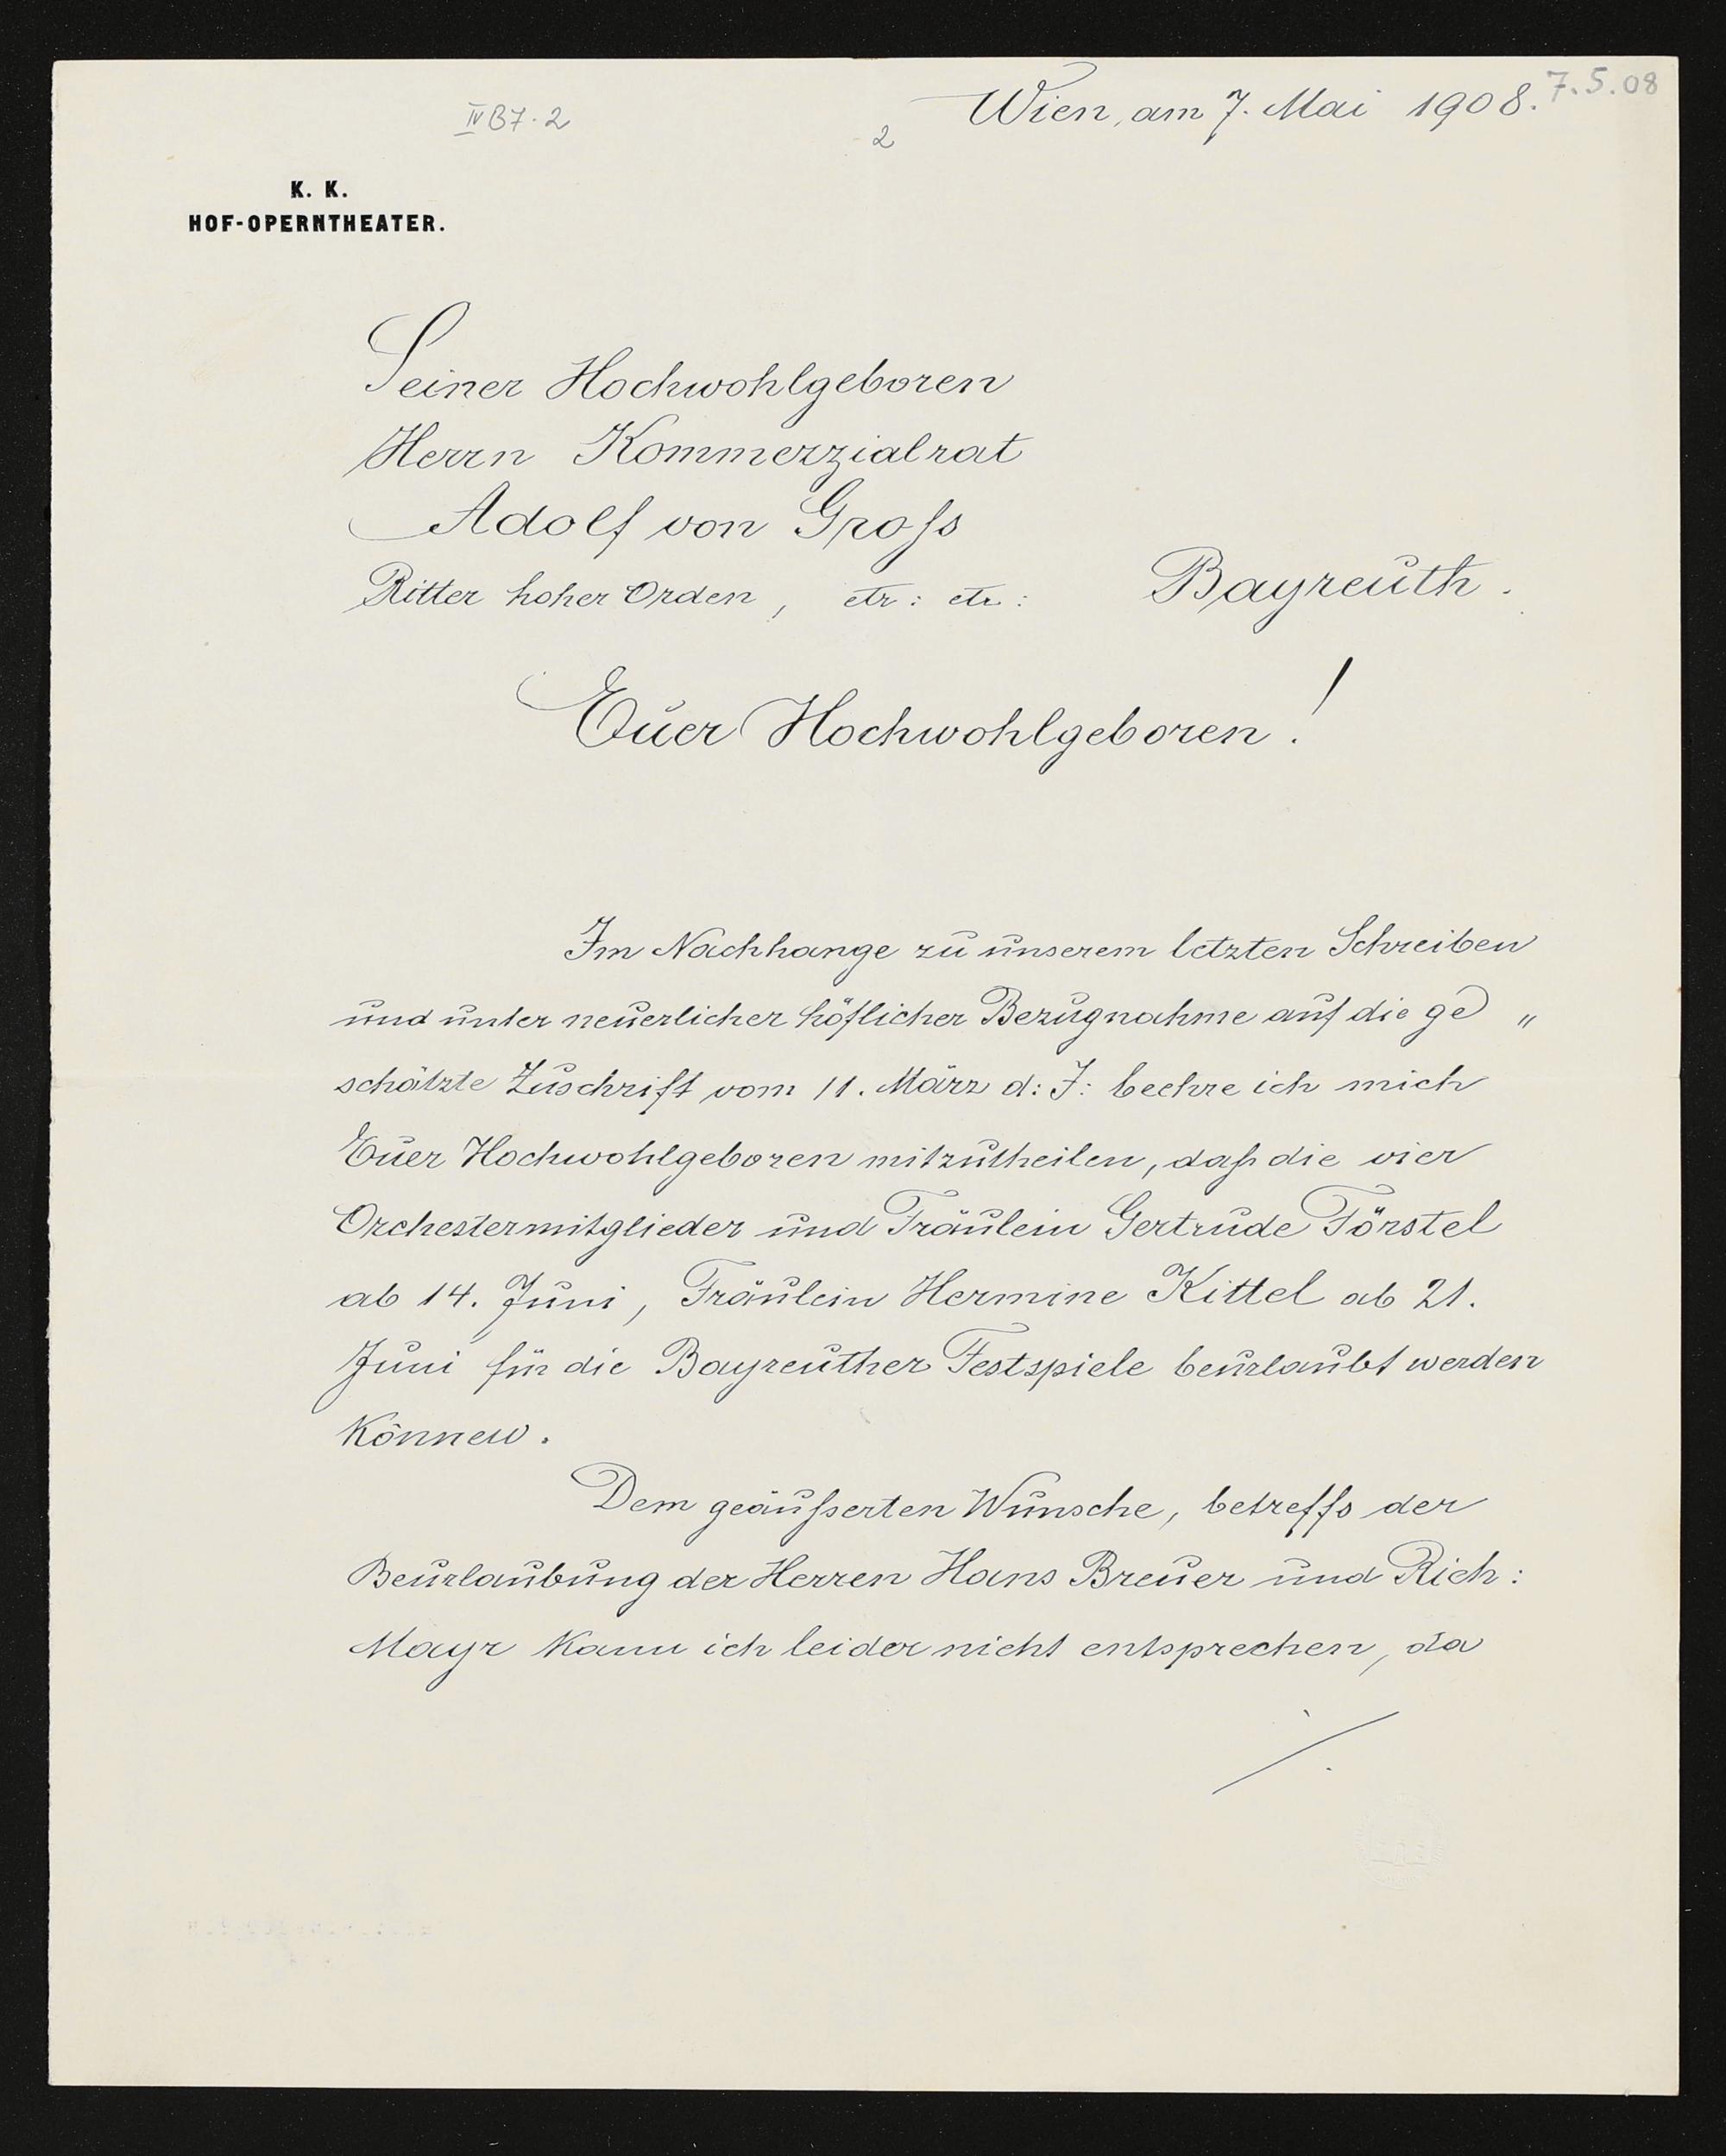 7.5.08
Wien, am 7. Mai 1908.
IV B7.2
2
K. K.
HOF-OPERNTHEATER.
Seiner Hochwohlgeboren
Herrn Kommerzialrat
Adolf von Groſs
Ritter hoher Orden, etc: etc:
Bayreuth.
Euer Hochwohlgeboren!
Im Nachhange zu unserem letzten Schreiben
und unter neuerlicher höflicher Bezugnahme auf die ge„
schätzte Zuschrift vom 11. März d: J: beehre ich mich
Euer Hochwohlgeboren mitzutheilen, daſs die vier
Orchestermitglieder und Fräulein Gertrude Förstel
ab 14. Juni, Fräulein Hermine Kittel ab 21.
Juni für die Bayreuther Festspiele beurlaubt werden
können.
Dem geäuſserten Wunsche, betreffs der
Beurlaubung der Herren Hans Breuer und Rich:
Mayr kann ich leider nicht entsprechen, da
./.